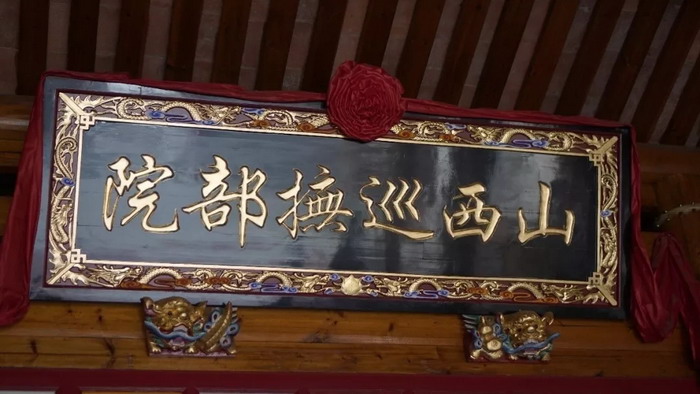 山西巡撫部院